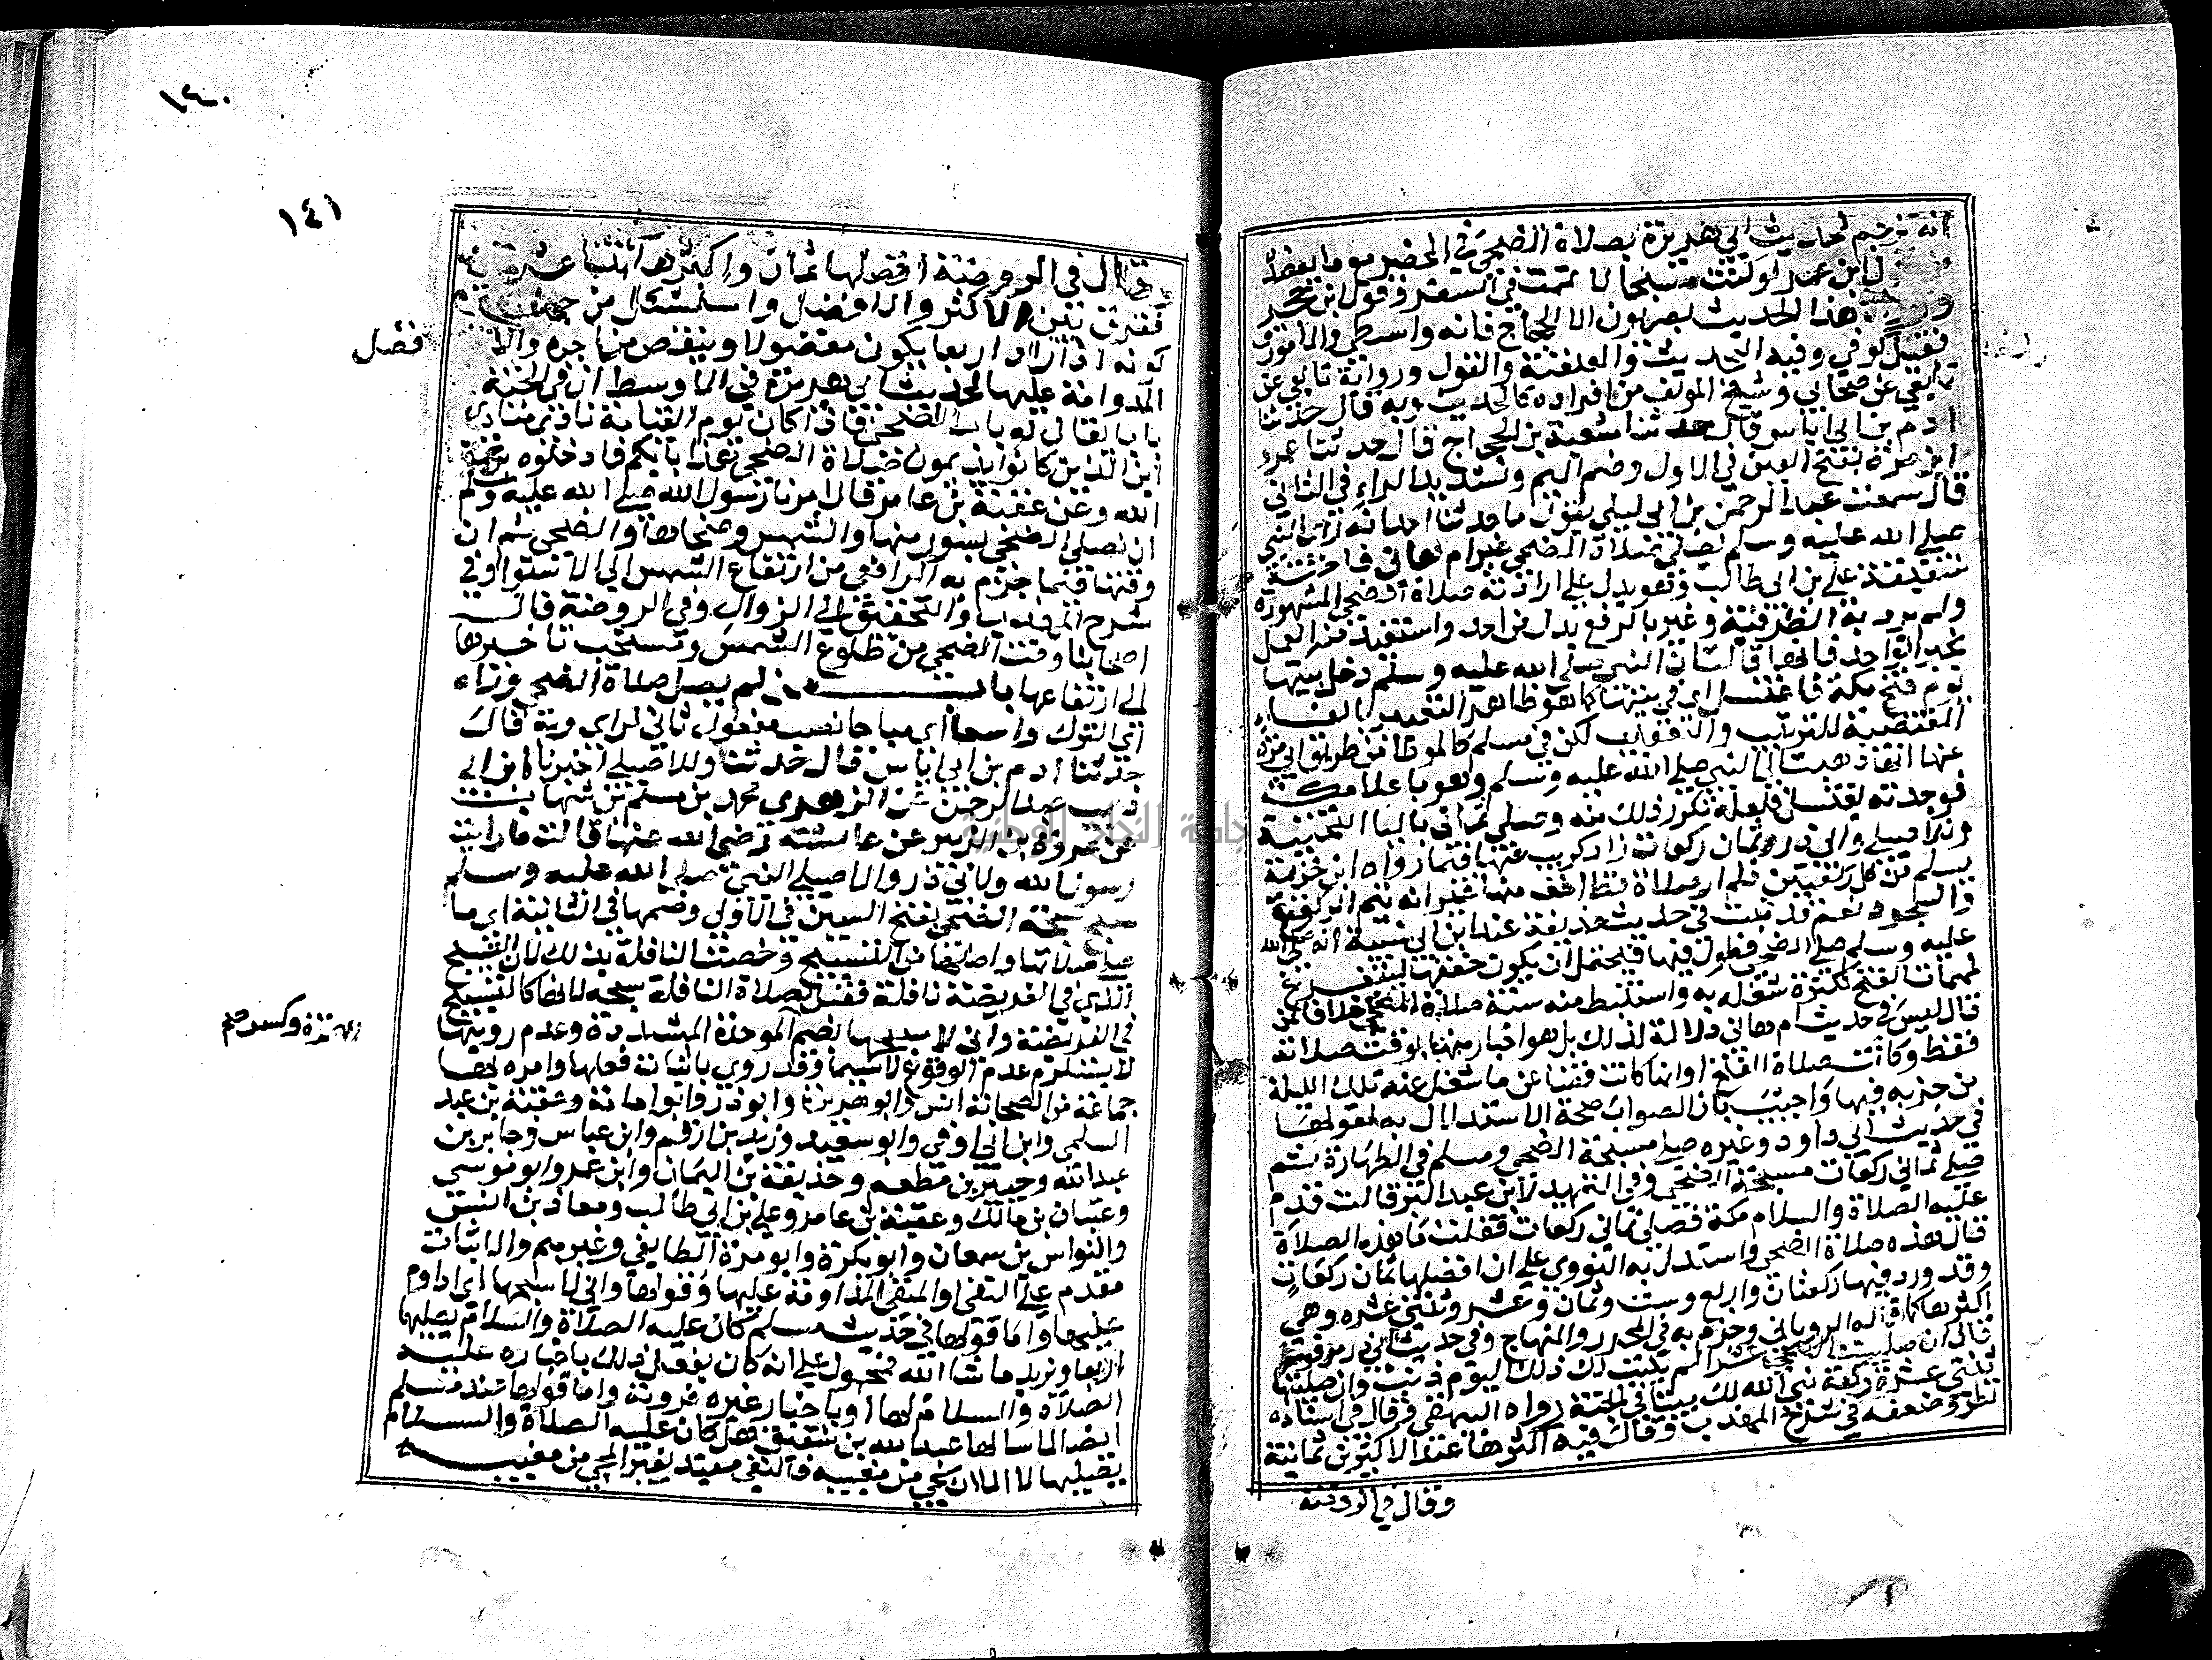 انه ترجم لحديث ابي هريرة بصلاة الضحى في الحضر مع ما يعضده
ل ابن عمر لو كنت مسبحا لاتممت في السفر فقول ابن حجر
هذا الحديث بصريون الا الحجاج فانه واسطي والمانور
فقيل كوفي وفيه التحديث والعنعنة والقول ورواية تابعي عن
تابعي عن صحابي وشيخ المولف من افراده كالحديث وبه قال حدثنا
ادم بن ابي اياس قال حدثنا شعبة بن الحجاج قال حدثنا عمرو
ابن مرة بفتح العين في الاول وضم الميم وتشديد الراء في الثاني
قال سمعت عبد الرحمن بن ابي ليلى يقول ما حدثنا احد انه راى النبي
صلى الله عليه وسلم يصلي صلاة الضحى غير ام هاني فاختة
شقيقة علي بن ابي طالب وهو يدل على ارادته صلاة الضحى المشهورة
ولم يرد به الظرفية وغير بالرفع بدل من احد واستفيد منه العمل
بخبر الواحد فانها قالت ان النبي صلى الله عليه وسلم دخل بيتها
يوم فتح مكة فاغتسل اي في بيتها كما هو ظاهر التعبير بالفاء
المقتضية للترتيب والتعقيب لكن في مسلم كالموطا من طريق ابي مرة
عنها انها ذهبت الى النبي صلى الله عليه وسلم وهو باعلا مكة
فوجدته يغتسل فلعله تكرر ذلك منه وصلى ثماني بالياء التحتية
وللاصيلي وابي ذر وثمان ركعات زاد كريب عنها فيما رواه ابن خزيمة
يسلم من كل ركعتين فلم ار صلاة قط اخف منها غير انه يتم الركوع
والسجود نعم قد ثبت في حديث حذيفة عند ابن ابي شيبة انه صلى الله
عليه وسلم صلى الضحى فطول فيها فيحتمل ان يكون خففها ليتفرغ
لمهمات الفتح لكثرة شغله به واستنبط منه سنة صلاة الضحى خلافا لمن
قال ليس في حديث ام هاني دلالة لذلك بل هو اخبار منها بوقت صلاته
فقط وكانت صلاة الفتح او انها كانت قضا عن ما شغل عنه تلك الليلة
من حزبه فيها واجيب بان الصواب صحة الاستدلال به لقولها
في حديث ابي داود وغيره صلى سبحة الضحى ومسلم في الطهارة ثم
صلى ثماني ركعات سبحة الضحى وفي التمهيد لابن عبد البر قالت قدم
عليه الصلاة والسلام مكة فصلى ثماني ركعات فقلت ما هذه الصلاة
قال هذه صلاة الضحى واستدل به النووي على ان افضلها ثمان ركعات
وقد ورد فيها ركعتان واربع وست وثمان وعشر وثنتي عشره وهي
اكثرها كما قاله الروياني وجزم به في المحرر والمنهاج وفي حديث ابي ذر مرفوعا
قال ان صليت الضحى عشرا لم يكتب لك ذلك اليوم ذنب وان صليتها
ثنتي عشرة ركعة بنى الله لك بيتا في الجنة رواه البيهقي وقال في اسناده
نظر وضعفه في شرح المهذب وقال فيه اكثرها عند الاكثرين ثمانية
وقال في الروضة
١٤٠
١٤١
وقال في الروضة افضلها ثمان واكثرها ثنتا عشرة
ففرق بين الاكثر والافضل واستشكل من جهة
كونه اذا زاد اربعا يكون مفضولا وينقص من اجره والا
فضل
المداومة عليها لحديث ابي هريرة في الاوسط ان في الجنة
بابا يقال له باب الضحى فاذا كان يوم القيامة نادى منادي
اين الذين كانوا يديمون صلاة الضحى هذا بابكم فادخلوه برحمة
الله وعن عقبة بن عامر قال امرنا رسول الله صلى الله عليه وسلم
ان نصلي الضحى بسور منها والشمس وضحاها والضحى ثم ان
وقتها فيما جزم به الرافعي من ارتفاع الشمس الى الاستوا وفي
شرح المهذب والتحقيق الى الزوال وفي الروضة قال
اصحابنا وقت الضحى من طلوع الشمس ويستحب تاخيرها
الى ارتفاعها باب من لم يصل صلاة الضحى وراء
اي الترك واسعا اي مباحا نصب مفعول ثاني لراى وبه قال
حدثنا ادم بن ابي اياس قال حدثنا وللاصيلي اخبرنا ابن ابي
ذيب عبد الرحمن عن الزهري محمد بن مسلم بن شهاب
عن عروة بن الزبير عن عائشة رضي الله عنها قالت ما رايت
رسول الله ولابي ذر والاصيلي النبي صلى الله عليه وسلم
سبح سبحة الضحى بفتح السين في الاولى وضمها في الثانية اي ما
صلى صلاتها واصلها من التسبيح وخصت النافلة بذلك لان التسبيح
الذي في الفريضة نافلة فقيل لصلاة النافلة سبحة لانها كالتسبيح
في الفريضة واني لاسبحها بضم الموحدة المشددة وعدم رويتها
الهمزة وكسر
لا يستلزم عدم الوقوع لا سيما وقد روي باثبات فعلها وامره بها
جماعة من الصحابة انس وابو هريرة وابو ذر وابو امامة وعقبة بن عبد
السلمي وابن ابي اوفى وابو سعيد وزيد بن ارقم وابن عباس وجابر بن
عبد الله وجبير بن مطعم وحذيفة بن اليمان وابن عمر وابو موسى
وعتبان بن مالك وعقبة بن عامر وعلي بن ابي طالب ومعاذ بن انس
والنواس بن سمعان وابو بكرة وابو مرة الطايفي وغيرهم والاثبات
مقدم على النفي او المنفي المداومة عليها وقولها واني لاسبحها اي اداوم
عليها واما قولها في حديث مسلم كان عليه الصلاة والسلام يصليها
اربعا ويزيد ما شا الله فمحمول على انه كان يفعل ذلك باخباره عليه
الصلاة والسلام لها او باخبار غيره فروته واما قولها عند مسلم
ايضا لما سالها عبد الله بن شقيق هل كان عليه الصلاة والسلام
يصليها لا الا ان يجي من مغيبه فالنفي مقيد بغير المجي من مغيبه
جامعة النجاح الوطنية